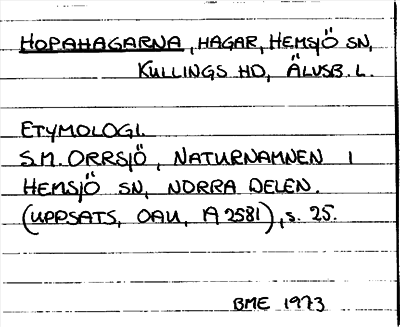 HOPAHAGARNA, HAGAR, HEMSJÖ SN,
KULLINGS HD, ÄLVSB. L.
ETYMOLOGI.
S.M. ORRSJÖ, NATURNAMNEN I
HEMSJÖ SN, NORRA DELEN.
(UPPSATS, OAU, A 2581), s. 25.
BME 1973